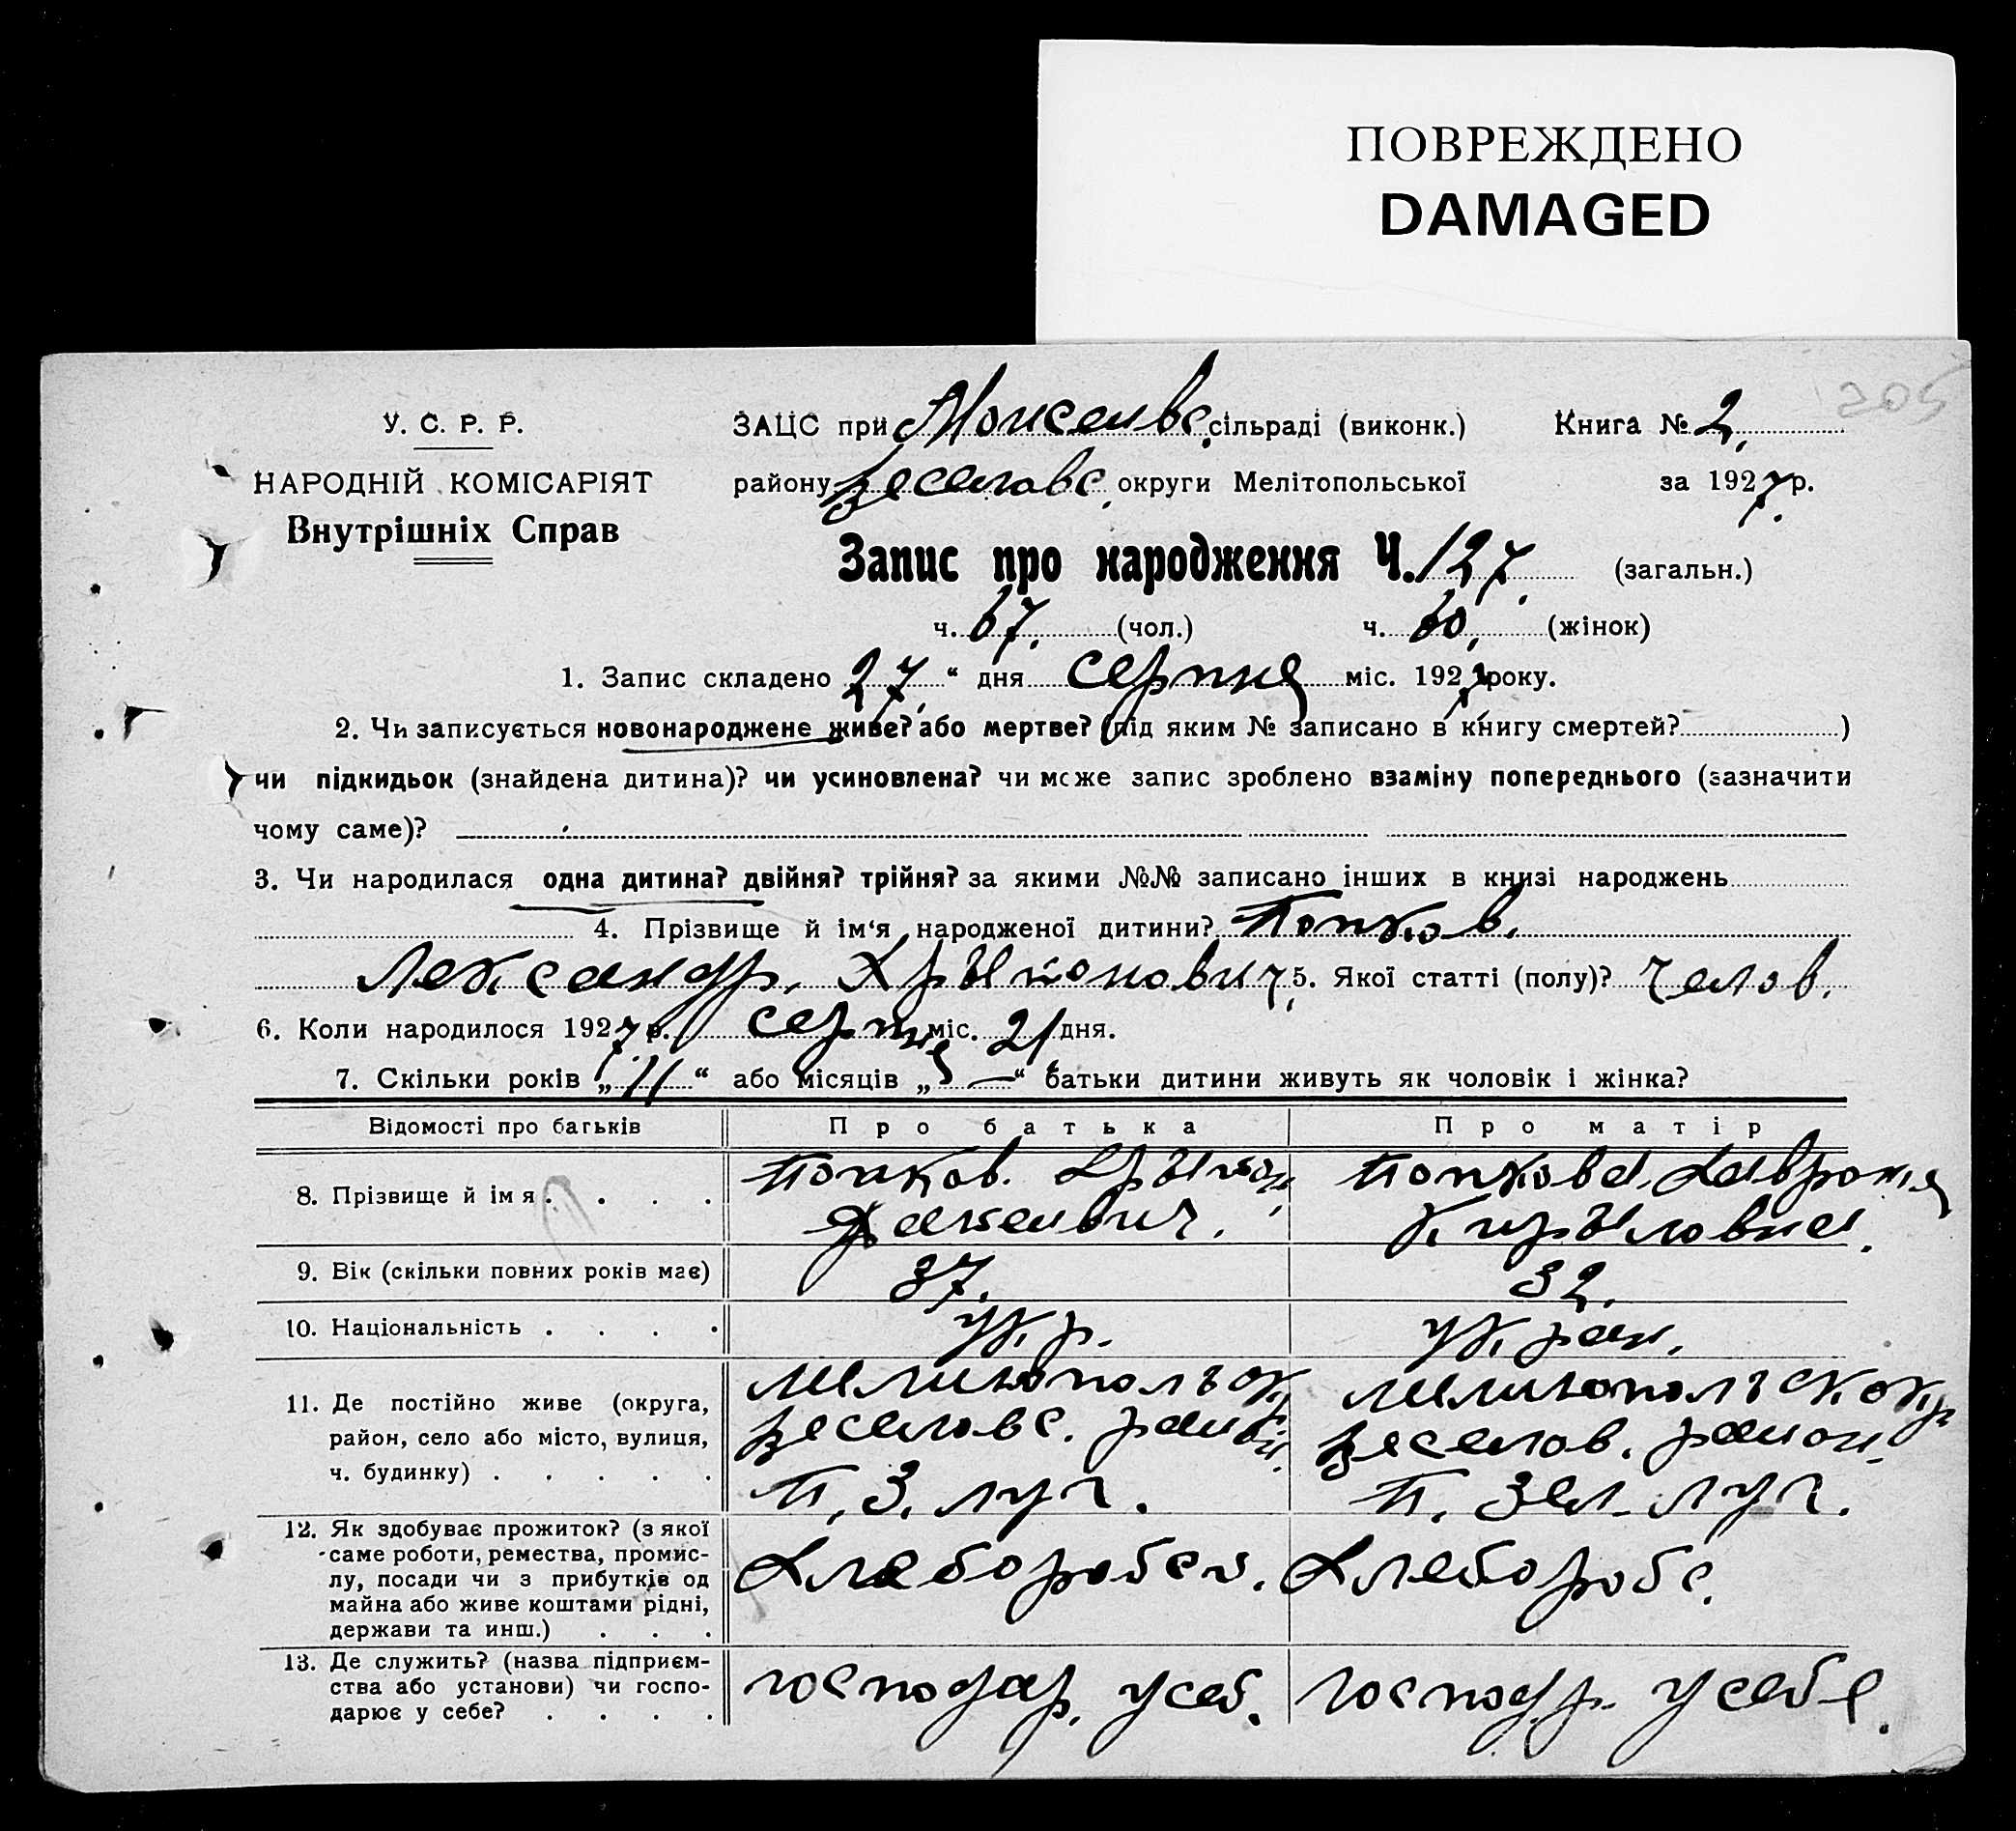 ПОВРЕЖДЕНО
DAMAGED
205
У. С. Р. Р.
НАРОДНІЙ КОМІСАРІЯТ
Внутрішніх Справ
ЗАЦС при Моисеивс. сільраді (виконк.)
Книга № 2.
району Веселовс. округи Мелітопольської
за 1927 р.
Запис про народження Ч. 127. (загальн.)
ч. 67. (чол.) ч. 60. (жінок)
1. Запис складено 27 “ дня серпня міс. 1927 року.
2. Чи записується новонароджене живе? або мертве? (під яким № записано в книгу смертей? )
чи підкидьок (знайдена дитина)? чи усиновлена? чи може запис зроблено взаміну попереднього (зазначити
чому саме)?
3. Чи народилася одна дитина? двійня? трійня? за якими №№ записано інших в книзі народжень
4. Прізвище й ім‘я народженої дитини? Попков.
Лександр. 5. Якої статті (полу)? челов.
6. Коли народилося 1927 р. серпня міс. 21 дня.
7. Скільки років „ 11 “ або місяців „ — “ батьки дитини живуть як чоловік і жінка?
Відомості про батьків Про батька Про матір
8. Прізвище й імя . . . . Попков. Попкова. Хавроня
Якекевич. Кирыловна.
9. Вік (скільки повних років має) 37. 32.
10. Національність . . . . Ук. р. Укра.
11. Де постійно живе (округа,
район, село або місто, вулиця,
ч. будинку) . . . . .
Мелитополь ок
Веселовс. район.
П. З. луч.
Мелитопольск окр
Веселов. район.
П. Зел. луч.
12. Як здобуває прожиток? (з якої
саме роботи, ремества, промис-
лу, посади чи з прибутків од
майна або живе коштами рідні,
держави та инш.) . . .
Хлеборобст. Хлеборобс.
13. Де служить? (назва підприєм-
ства або установи) чи госпо-
дарює у себе? . . . .
господар. у себ. господр. у себе.